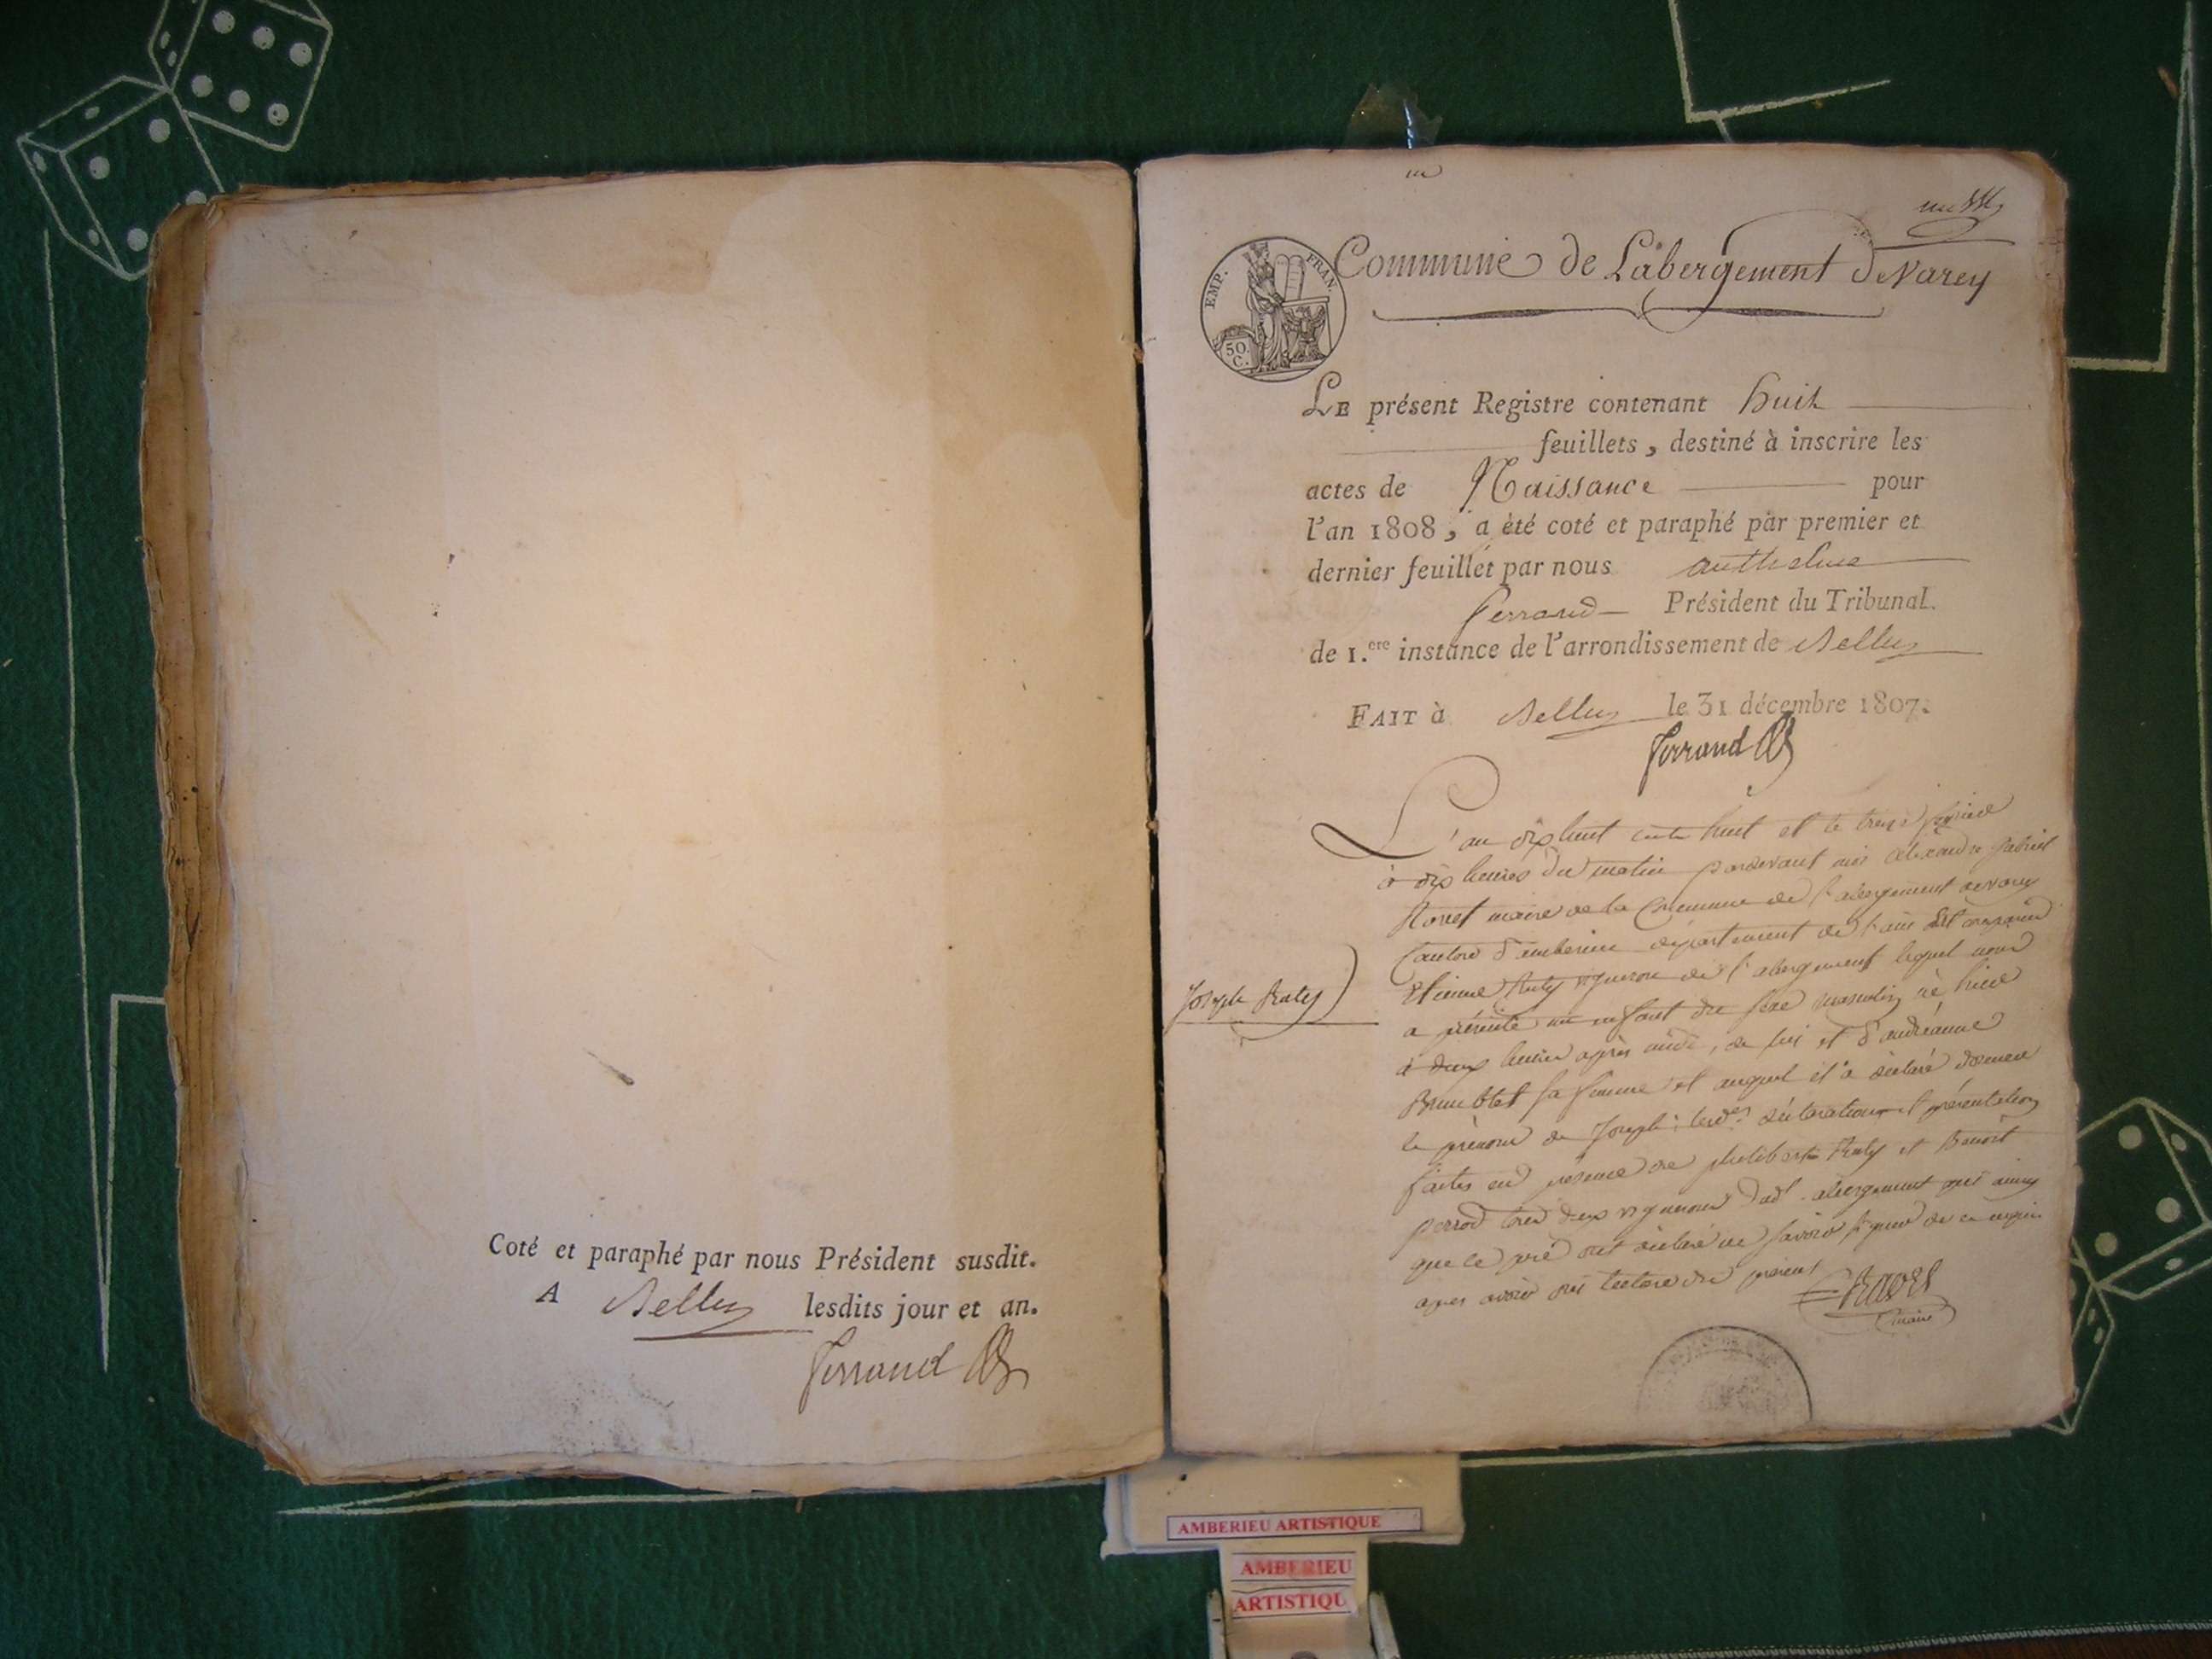 Coté et paraphé par nous Président susdit.
A Belley lesdits jour et an.
Ferrand
un
EMP. FRAN.
50.
C.
Commune de Labergement de Varey
LE présent Registre contenant huit
feuillets, destiné à inscrire les
actes de Naissance pour
l'an 1808, a été coté et paraphé par premier et
dernier feuillet par nous anthelme
ferrand Président du Tribunal
de 1.ere instance de l'arrondissement de Belley
FAIT à Belley le 31 décembre 1807.
Ferrand
Joseph Ruty
L'an dix huit cents huit et le treize
à dix heures du matin pardevant nous alexandre gabriel
maire de la Commune de l'abergement de varey
Canton d'amberieu département de l'ain est comparu
Etienne Ruty vigneron de l'abergement lequel nous
a présenté un enfant du sexe masculin né hier
à deux heures après midi, de lui et d'andréanne
sa femme et auquel il a déclaré donner
le prénom de Joseph; lesd.es déclaration et présentation
faites en présence de philibert Ruty et Benoit
perrod tous deux vignerons dud. abergement qui ainsy
que le père ont déclaré ne savoir signer de ce requis
après avoir pris lecture du présent
Ravet
maire
AMBERIEU ARTISTIQUE
AMBERIEU
ARTISTIQU